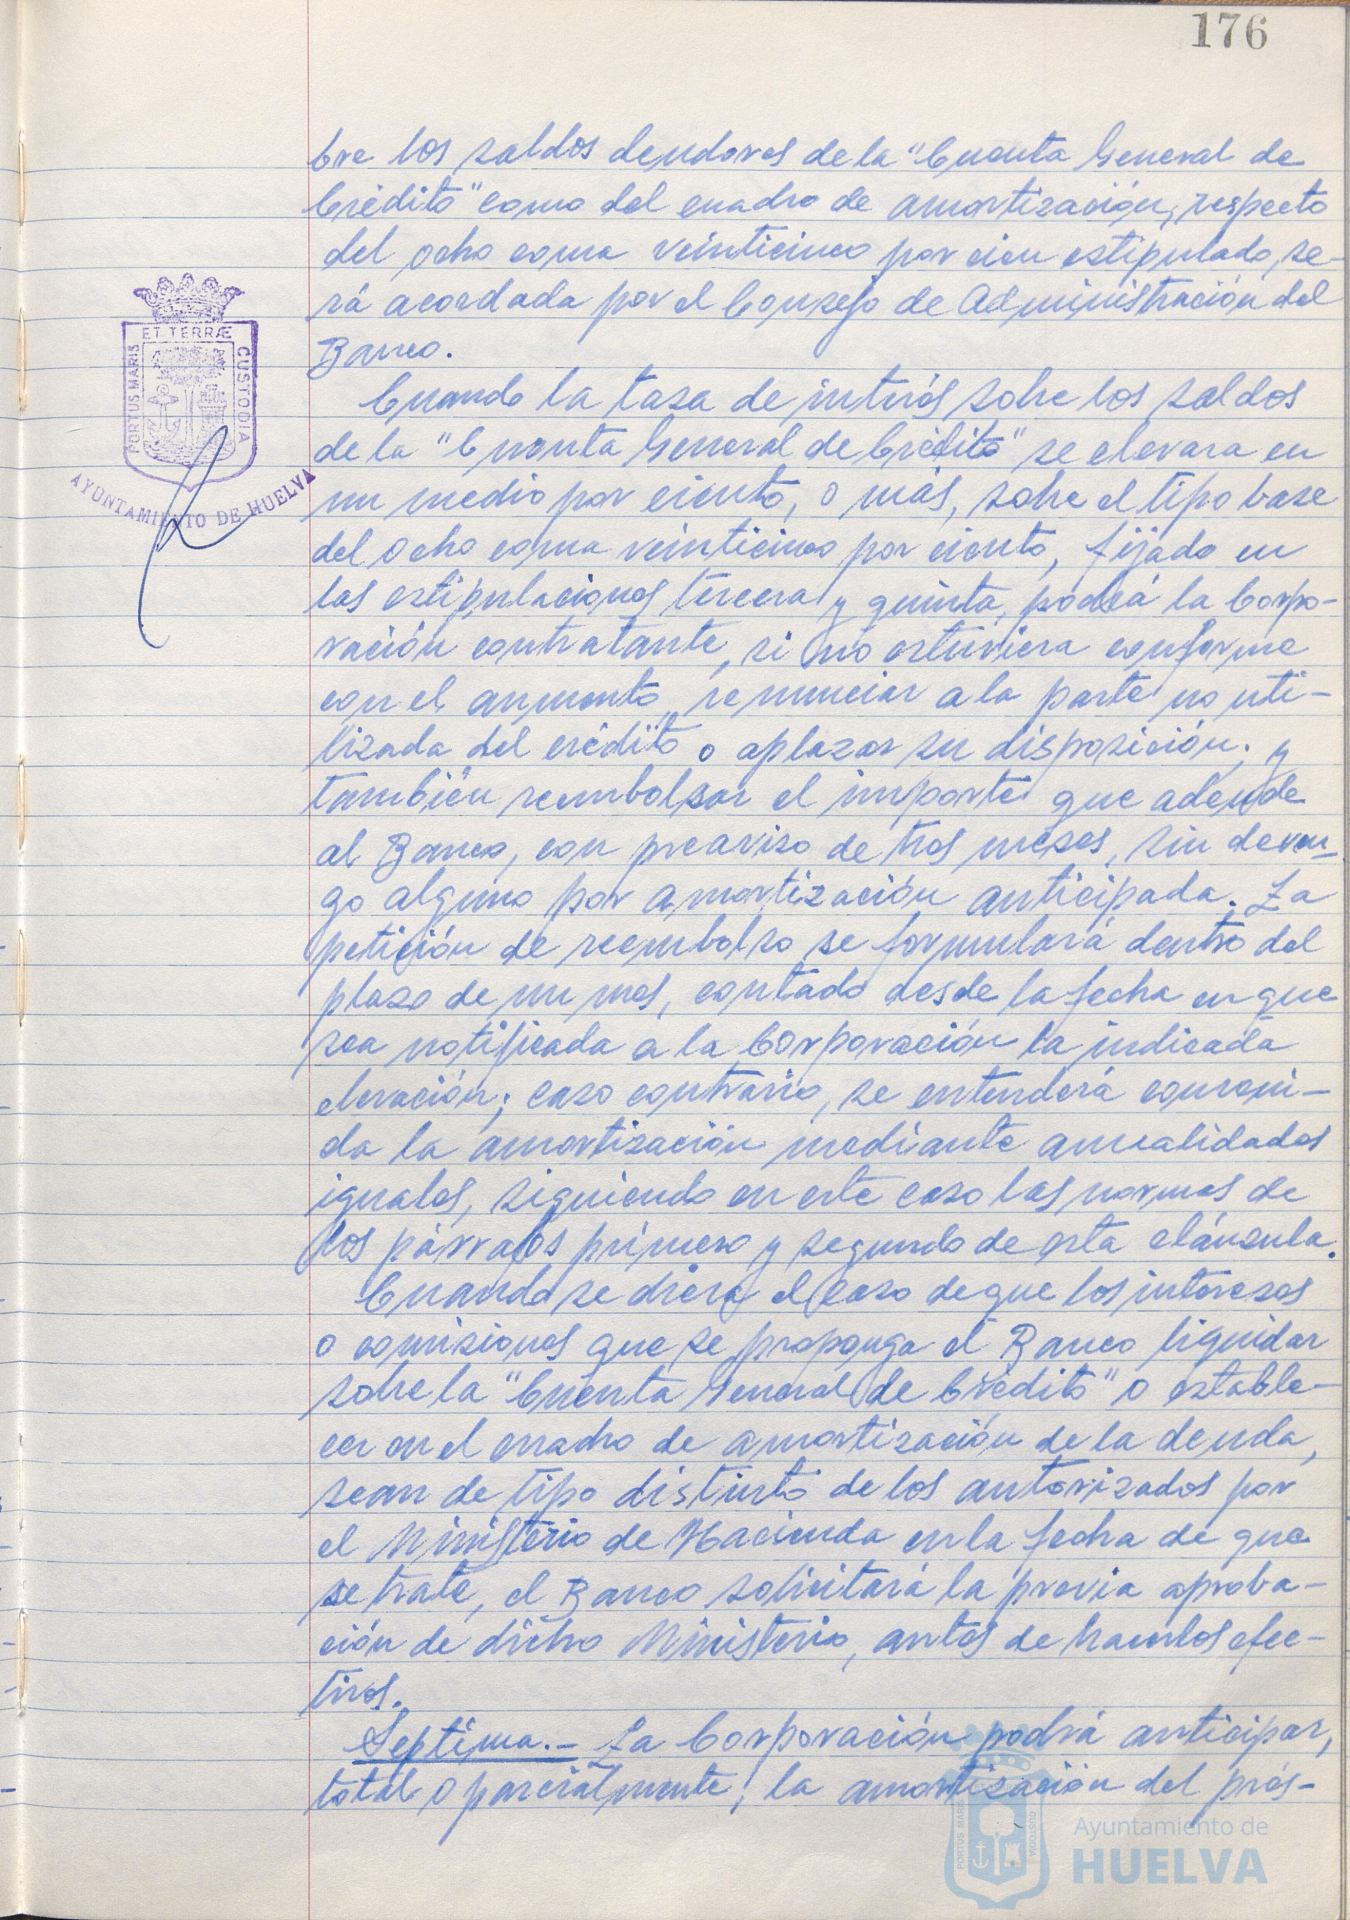 176
bre los saldos deudores de la "Cuenta General de
Crédito" como del cuadro de amortización, respecto
del ocho coma veinticinco por cien estipulado, se-
rá acordada por el Consejo de Administración del
Banco.
Cuando la tasa de interés sobre los saldos
de la "Cuenta General de Crédito" se elevara en
un medio por ciento, o más, sobre el tipo base
del ocho coma veinticinco por ciento, fijado en
las estipulaciones tercera y quinta, podrá la Corpo-
ración contratante, si no estuviera conforme
con el aumento, renunciar a la parte no uti-
lizada del crédito o aplazar su disposición; y
también reembolsar el importe que adeude
al Banco, con preaviso de tres meses, sin deven-
go alguno por amortización anticipada. La
petición de reembolso se formulará dentro del
plazo de un mes, contado desde la fecha en que
sea notificada a la Corporación la indicada
elevación; caso contrario, se entenderá conveni-
da la amortización mediante anualidades
iguales, siguiendo en este caso las normas de
los párrafos primero y segundo de esta cláusula.
Cuando se diera el caso de que los intereses
o comisiones que se proponga el Banco liquidar
sobre la "Cuenta General de Crédito" o estable-
cer en el cuadro de amortización de la deuda,
sean de tipo distinto de los autorizados por
el Ministerio de Hacienda en la fecha de que
se trate, el Banco solicitará la previa aproba-
ción de dicho Ministerio, antes de hacerlos efec-
tivos.
Septima.- La Corporación podrá anticipar,
total o parcialmente, la amortización del prés-
PORTUS MARIS
ET TERRÆ
CUSTODIA
AYUNTAMIENTO DE HUELVA
PORTUS MARIS
CUSTODIA
Ayuntamiento de
HUELVA